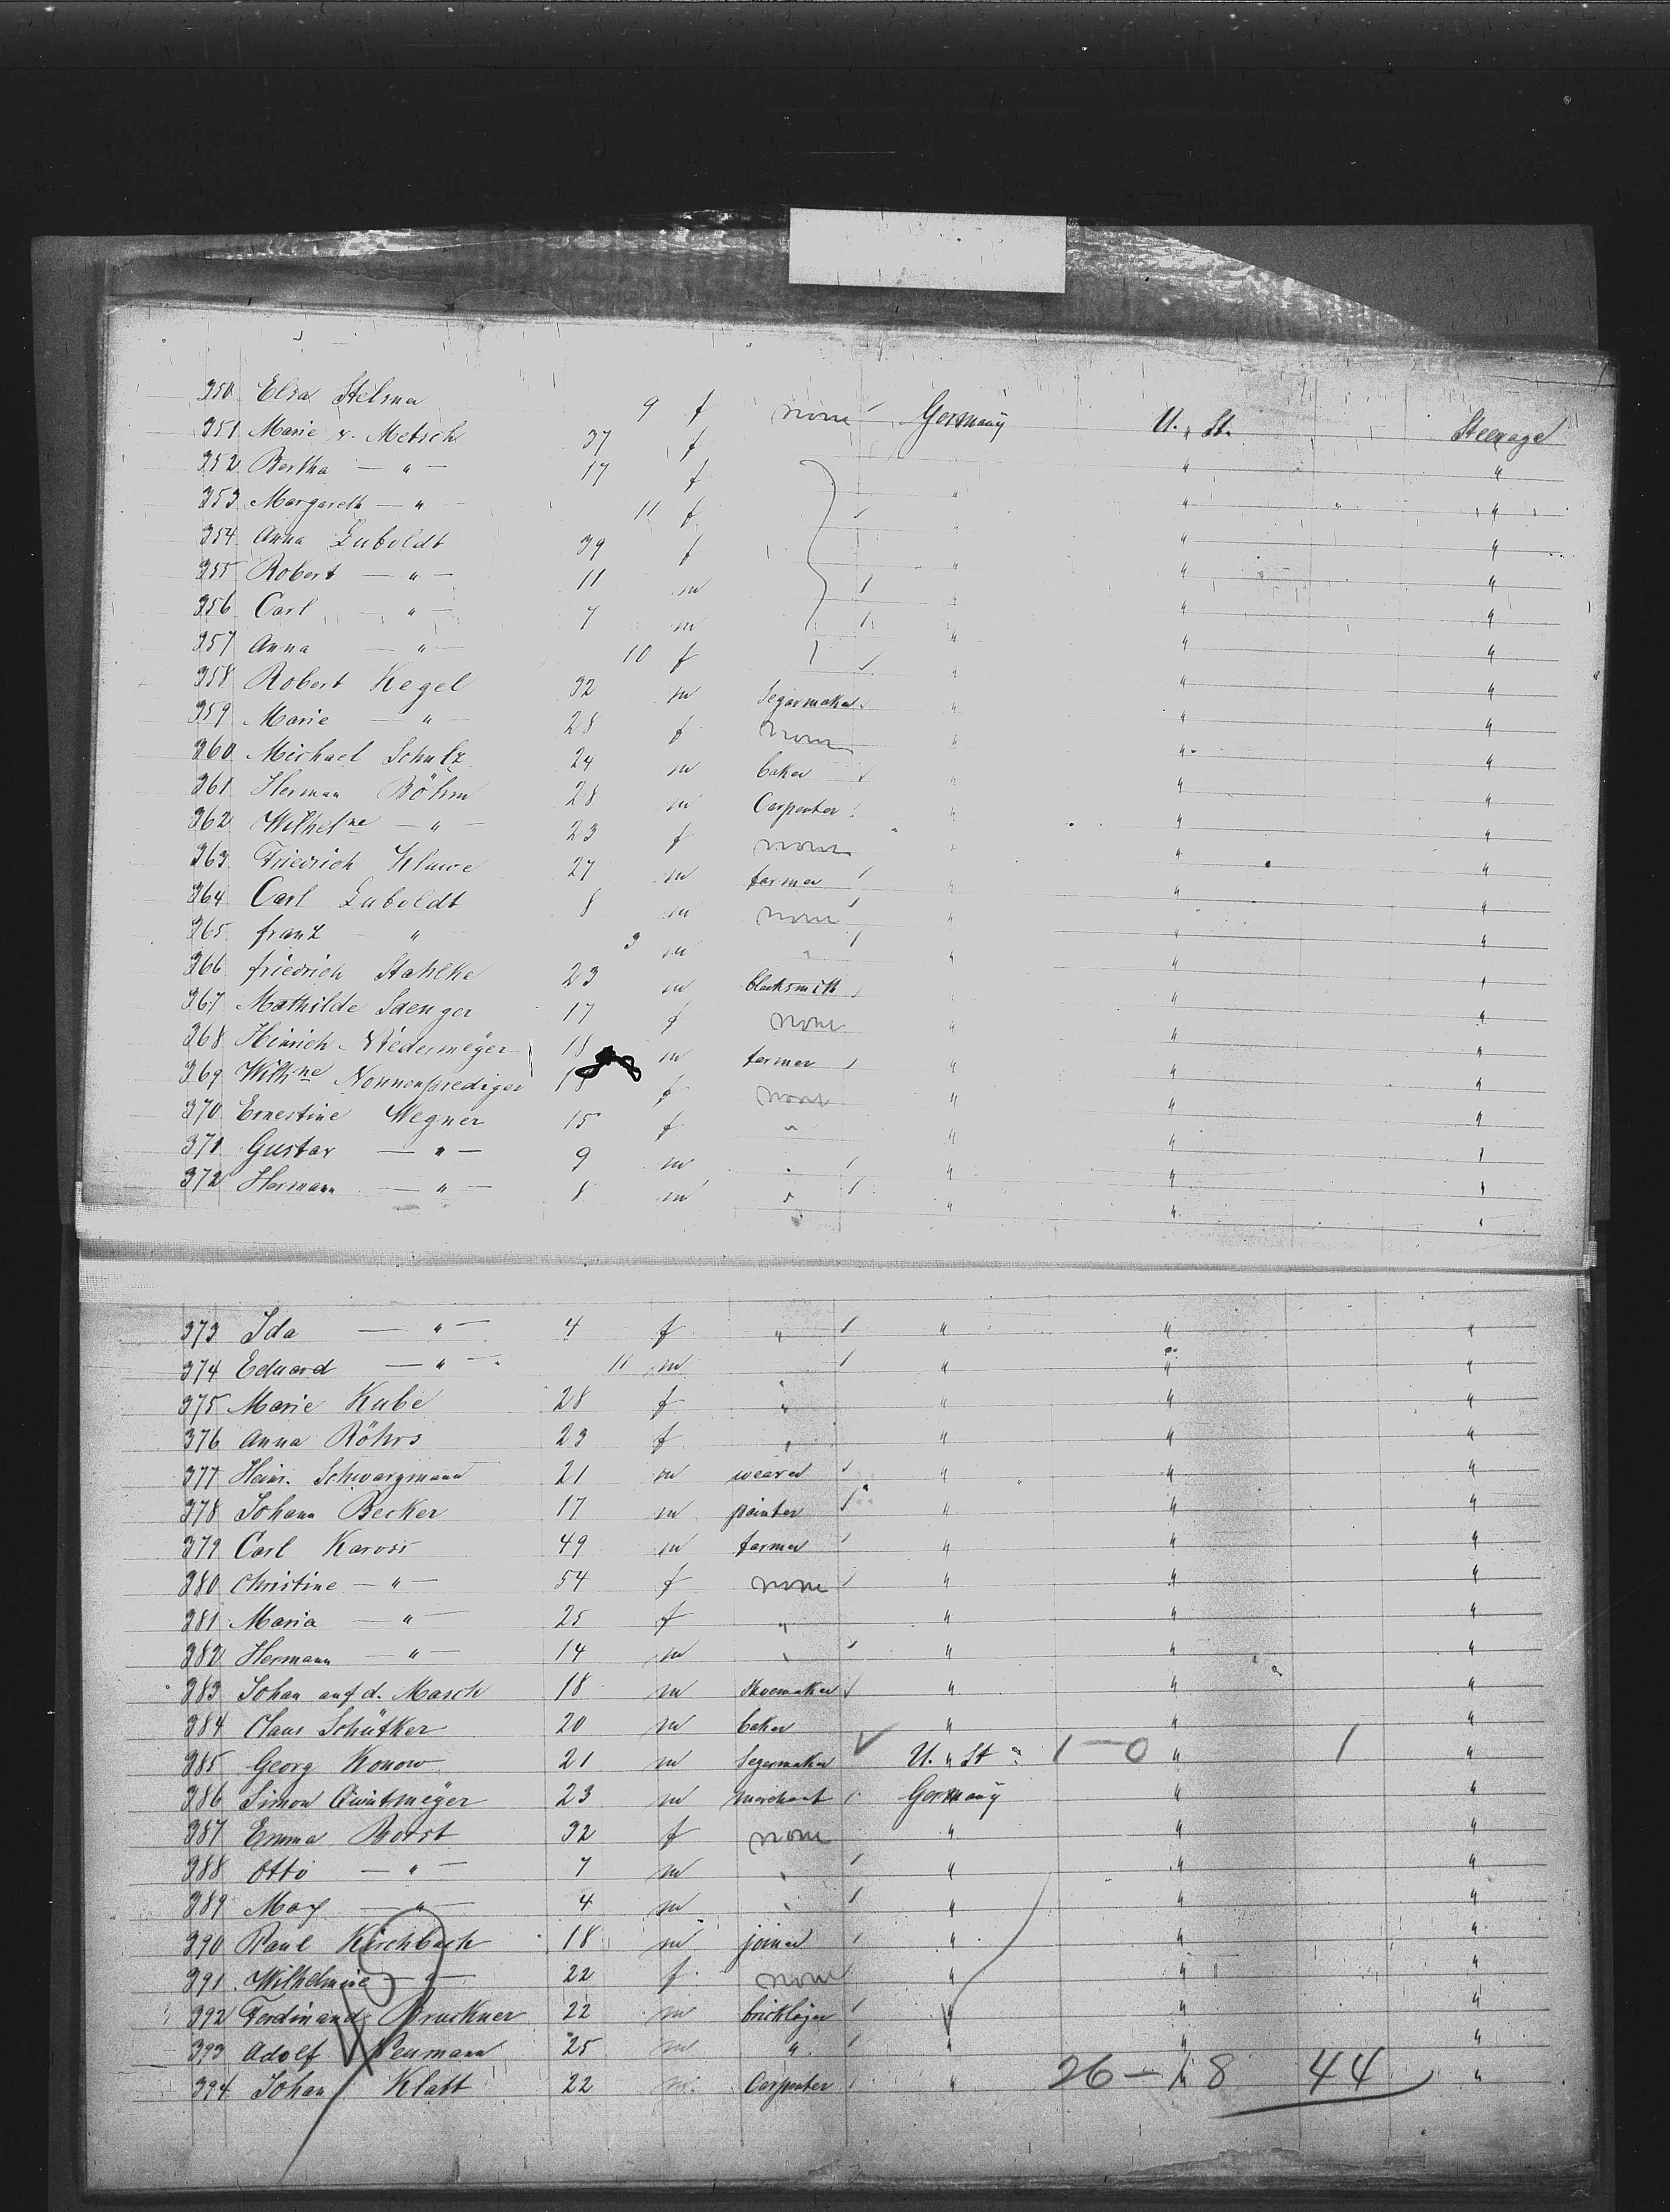 350 Elsa Stelsner 9 f none Germany U. " St. Steerage
351 Marie v. Metsch 37 f " "
352 Bertha — " — 17 f " " "
353 Margareth — " — 11 f " " "
354 Anna Luboldt 39 f " " "
355 Robert — " — 11 m " " "
356 Carl — " — 7 m " " "
357 Anna — " — 10 f " " "
358 Robert Kegel 32 m Segarmaker " " "
359 Marie — " — 28 f none " " "
360 Michael Schulz 24 m baker " " "
361 Herman Böhm 28 m Carpenter " " "
362 Wilhelne — " — 23 f none " " "
363 Friedrich Kluwe 27 m farmer " " "
364 Carl Luboldt 8 m none " " "
365 franz " 3 m " " " "
366 friedrich Stahlke 23 m blacksmith " " "
367 Mathilde Saenger 17 f none " " "
368 Hinrich Niedermeÿer 18 m farmer " " "
369 Wilhne Nonnenprediger f none " " "
370 Ernestine Wegner 15 f " " " "
371 Gustav — " — 9 m " " " "
372 Hermann — " — 8 m " " " "
373 Ida — " — 4 f " " " "
374 Eduard — " — 11 m " " "
375 Marie Kube 28 f " " " "
376 Anna Röhrs 23 f " " " "
377 Heinr. Schwarzmann 21 m weaver " " "
378 Johann Becker 17 m painter " " "
379 Carl Kaross 49 m farmer " " "
380 Christine — " — 54 f none " " "
381 Maria — " — 25 f " " " "
382 Hermann — " — 14 m " " " "
383 Johan auf d. Masch 18 m Shoemaker " " "
384 Claus Schütker 20 m baker " " "
385 Georg Konow 21 m Segarmaker U. " St 1 — 0 " 1 "
386 Simon Quintmeÿer 23 m merchant Germany " "
387 Emma Borst 32 f none " " "
388 Otto — " — 7 m " " " "
389 Max — " — 4 m " " " "
390 Paul Kirchbach 18 m joiner " " "
391 Wilhelmine — " — 22 f none " " "
392 Ferdinand Bruckner 22 m bricklayer " " "
393 Adolf Neumann 25 m " " " "
394 Johan Klatt 22 m Carpenter " 26 — 18 44 "